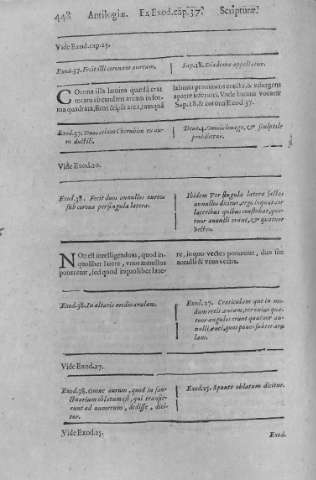 448 Antilogiæ. Ex Exod. cap. 37. Scripturæ.
Vide Exod. cap. 25.
Exod. 37. Fecit illi coronam auream.
Sap. 18. Diadema appellatur.
COrona illa lamina quædã erat
arcam circundans arcam in for-
ma quadrata, sicut
labium prominens extra, & subtegens
a parte inferiori, Vnde
Sap. 18. & corona Exod. 37.
Exod. 37. Duos etiam Cherubim ex au-
ro ductili.
Deut. 4. & sculptile
prohibetur.
Vide Exod. 20.
Exod. 38. Fecit duos annulos aureos
sub corona per singula latera.
Ibidem Per singula latera
annullos dicitur, ergo
lateribus quibus constabat, qua-
tuor annuli erant, & quatuor
NOn est intelligendum, quod in-
quolibet latere, vnus annullus
poneretur, sed quod in quolibet late-
re, in quo vectes ponerent, duo sint
annulli & vnus vectis.
Exod. 38. In altaris medio arulam.
Exod. 27. Craticulam que in mo-
dum retis æneam, per cuius qua-
tuor angulos erunt quatuor an-
nulli ænei, quos pones subter aru-
lam.
Vide Exod. 27.
Exod. 38. Omne aurum, quod in san-
ctuarium oblatum est, qui transfe-
runt ad numerum, dedisse, dici-
tur.
Exod. 25. Sponte oblatum dicitur.
Vide Exod. 25.
Exod.